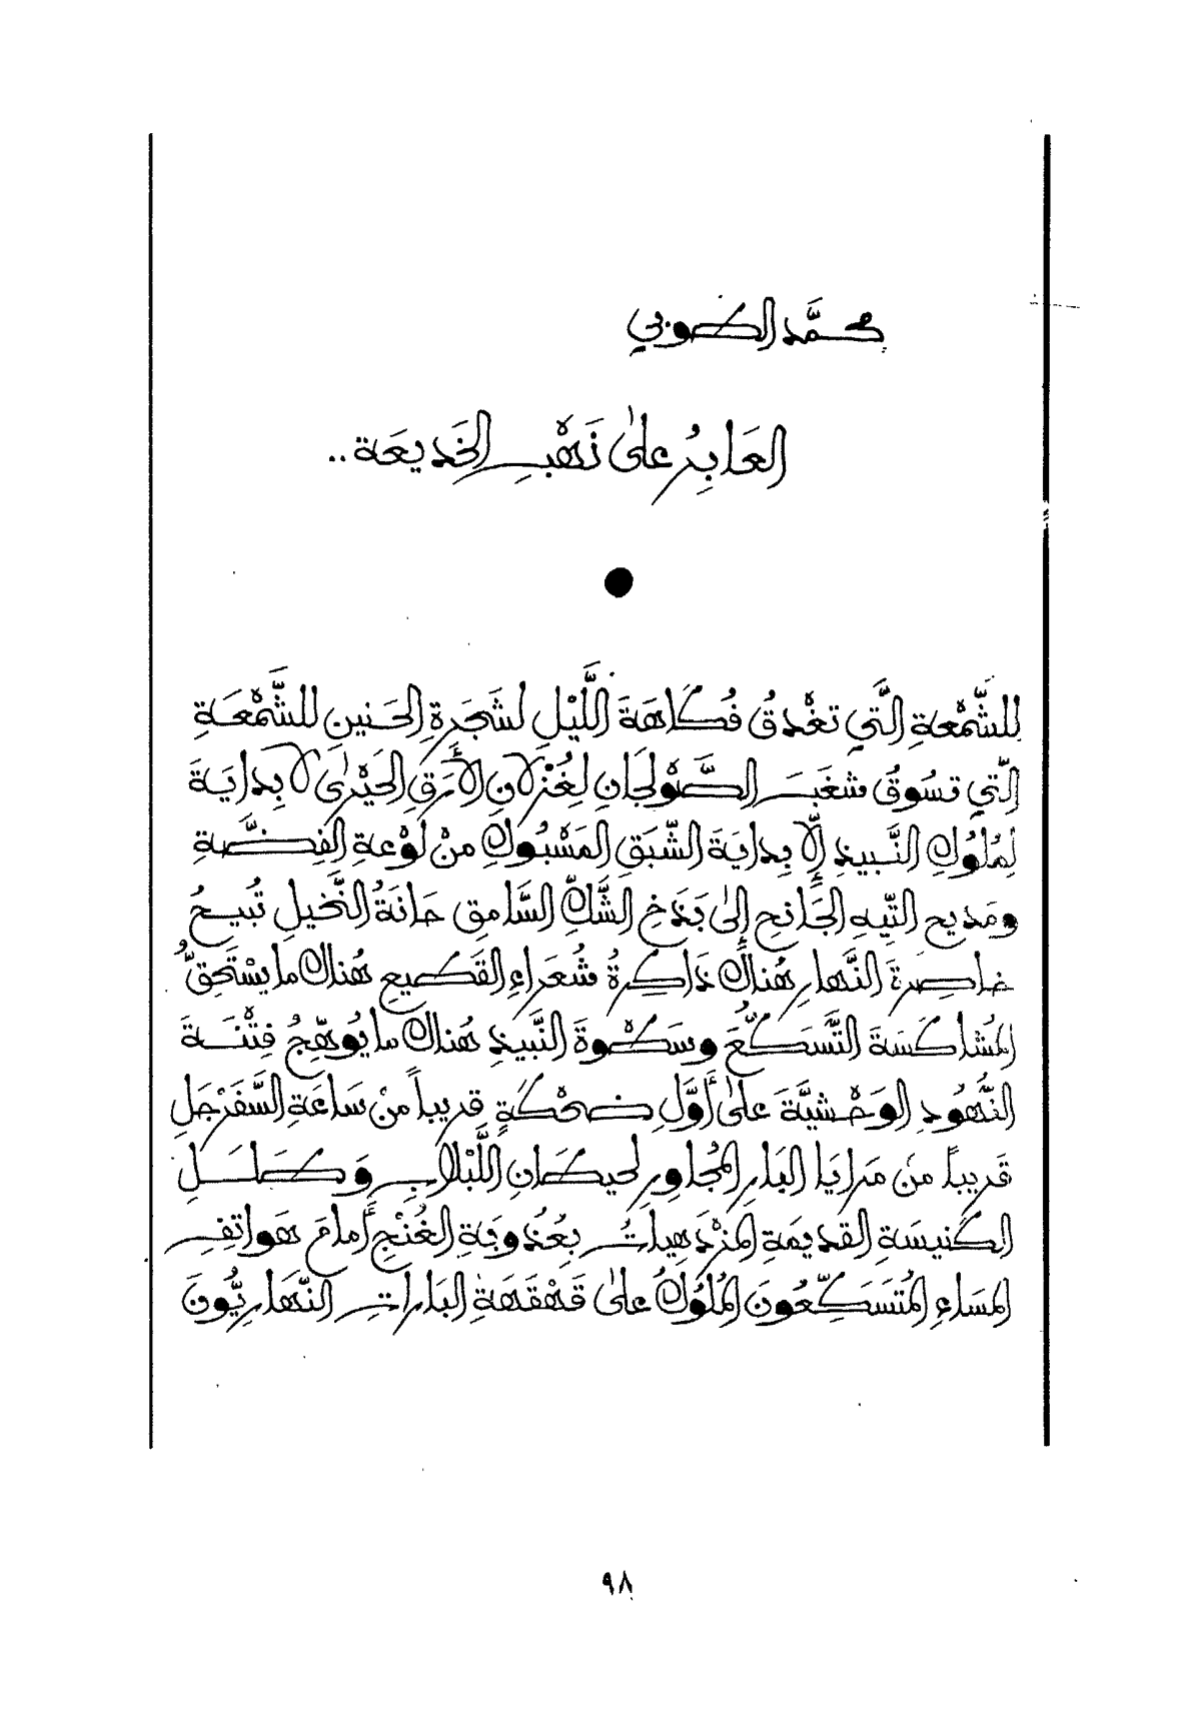 محمَّد الطوبي
العَابِرُ علىٰ نَهْبِ الخَديعَة ..
للشَّمْعةِ الَّتي تغْدقُ فُكَاهَةَ اللَّيْلِ لشَجَرةِ الحَنينِ للشَّمْعَةِ
الَّتي تسُوقُ شغَبَ الصَّوْلجَانِ لِغُزْلانِ الأَرَقِ الحَيْرىٰ لا بِدايَةَ
لمُلُوكِ النَّبيذِ إلَّا بِدايَةَ الشَّبَقِ المَسْبُوكِ منْ لَوْعةِ الفِضَّةِ
ومَديحِ التِّيهِ الجَانحِ إلىٰ بَذَخِ الشَّكِّ السَّامِقِ حَانَةُ النَّخيلِ تُبيحُ
خاصِرةَ النَّهارِ هُناكَ ذَاكِرةُ شُعَراءِ القَطيعِ هُناكَ ما يسْتَحِقُّ
المُشاكَسَةَ التَّسَكُّعَ وسَطْوةَ النَّبيذِ هُناكَ ما يُوهِّجُ فِتْنَةَ
النُّهُودِ الوَحْشيَّةَ علىٰ أوَّلِ ضَحْكَةٍ قريباً منْ سَاعَةِ السَّفَرْجَلِ
قَريباً منْ مَرايَا البَارِ المُجاورِ لحيطَانِ اللَّبْلابِ وَطَلَلِ
الكَنيسَةِ القديمَةِ المزْدَهِياتُ بعُذُوبَةِ الغُنْجِ أمامَ هَواتِفِ
المسَاءِ المُتَسَكِّعُونَ المُلُوكُ علىٰ قَهْقَهَةِ البَاراتِ النَّهَارِيُّونَ
٩٨